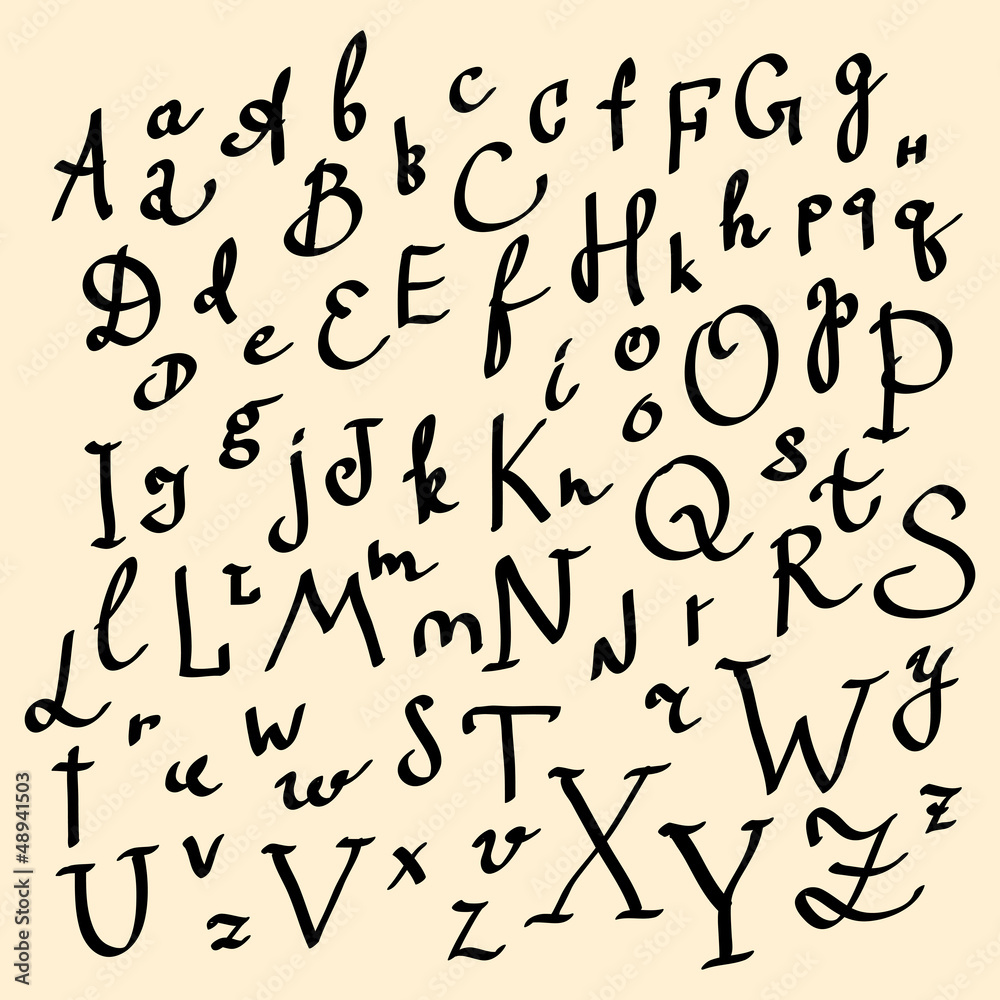 A a A b c C f F G g
a B B C H
D d e E E f H k h p q q
D i o O p P
I J g j J k K n o Q s t S
l L I M m m N N r R
L r w S T r W y
t u w X z
U v V x v Y Z
z z
Adobe Stock | #48941503